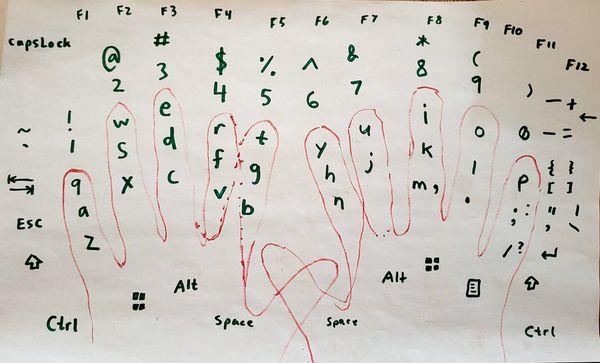 F1 F2 F3 F4 F5 F6 F7 F8 F9 F10 F11 F12
CapsLock
@ # $ % ^ & * ( ) _ +
~ ! 2 3 4 5 6 7 8 9 0 - =
` 1 w e r t y u i o p { }
q s d f g h j k l ; : [ ]
Esc a x c v b n m , . " | 
z ' \
/ ?
Alt Alt
Ctrl Space Space Ctrl